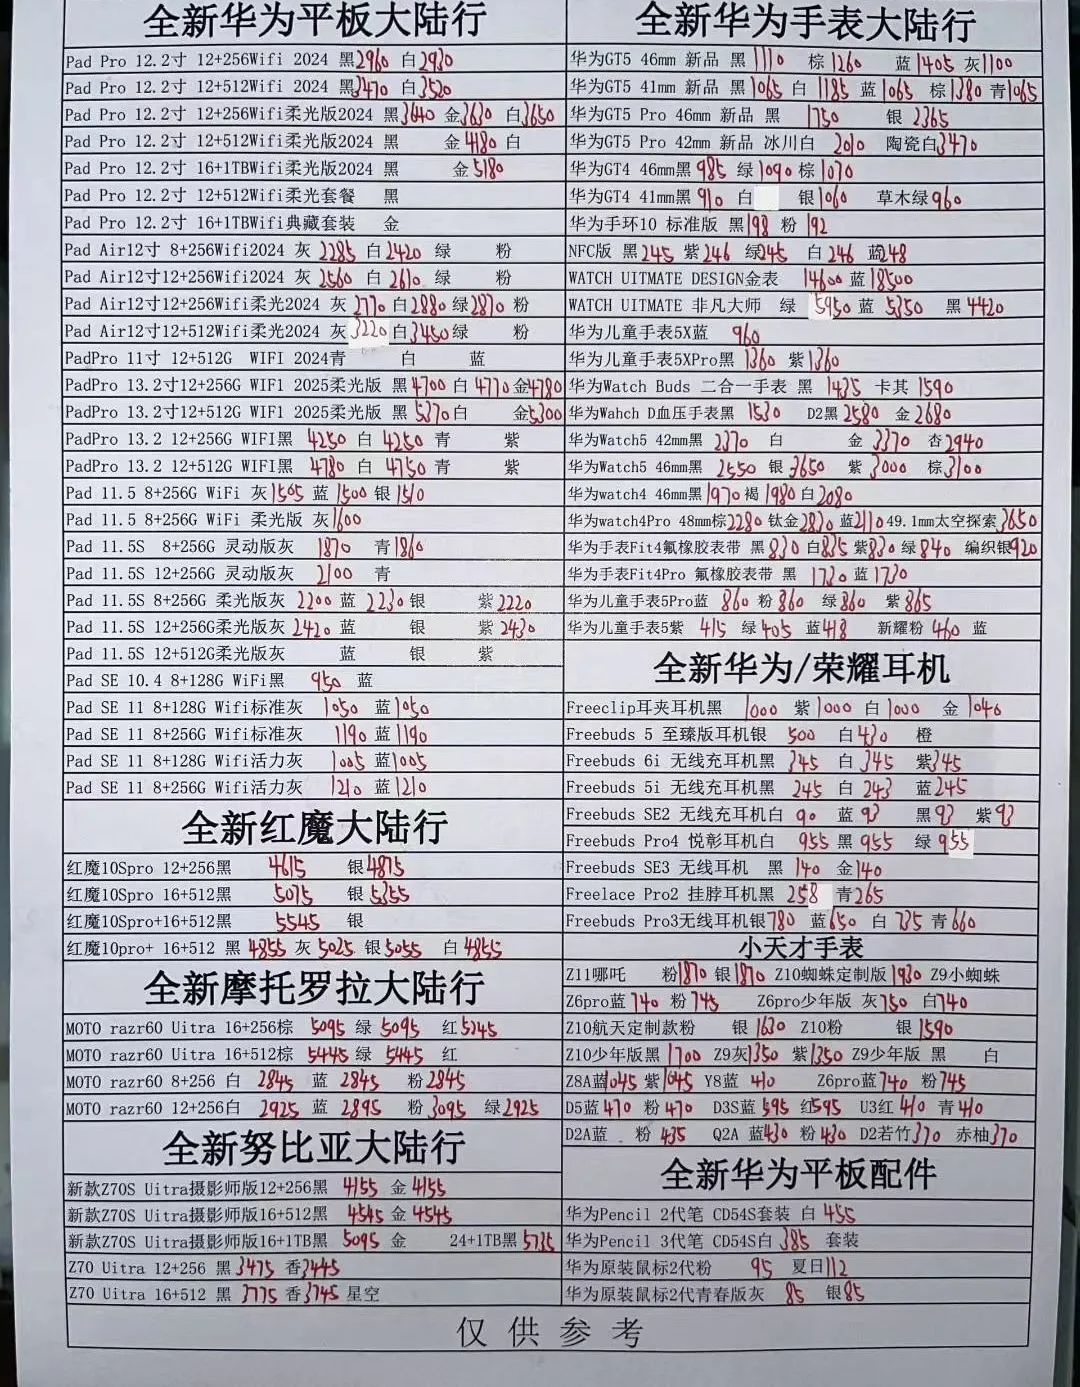 全新华为平板大陆行
Pad Pro 12.2寸 12+256Wifi 2024 黑2960 白2930
Pad Pro 12.2寸 12+512Wifi 2024 黑3470 白3520
Pad Pro 12.2寸 12+256Wifi柔光版2024 黑3640 金3630 白3650
Pad Pro 12.2寸 12+512Wifi柔光版2024 黑 金4180 白
Pad Pro 12.2寸 16+1TBWifi柔光版2024 黑 金5180
Pad Pro 12.2寸 12+512Wifi柔光套餐 黑
Pad Pro 12.2寸 16+1TBWifi典藏套装 金
Pad Air12寸 8+256Wifi2024 灰 2285 白2420 绿 粉
Pad Air12寸12+256Wifi2024 灰 2560 白 2610 绿 粉
Pad Air12寸12+256Wifi柔光2024 灰 2770 白2880 绿2870 粉
Pad Air12寸12+512Wifi柔光2024 灰3220 白3450 绿 粉
PadPro 11寸 12+512G WIFI 2024青 白 蓝
PadPro 13.2寸12+256G WIF1 2025柔光版 黑4700 白 4770 金4780
PadPro 13.2寸12+512G WIF1 2025柔光版 黑 5370 白 金5300
PadPro 13.2 12+256G WIFI黑 4250 白 4250 青 紫
PadPro 13.2 12+512G WIFI黑 4780 白 4750 青 紫
Pad 11.5 8+256G WiFi 灰1505 蓝1500 银1510
Pad 11.5 8+256G WiFi 柔光版 灰1600
Pad 11.5S 8+256G 灵动版灰 1870 青1860
Pad 11.5S 12+256G 灵动版灰 2100 青
Pad 11.5S 8+256G 柔光版灰 2200 蓝 2230 银 紫2220
Pad 11.5S 12+256G柔光版灰2420 蓝 银 紫2430
Pad 11.5S 12+512G柔光版灰 蓝 银 紫
Pad SE 10.4 8+128G WiFi黑 950 蓝
Pad SE 11 8+128G Wifi标准灰 1050 蓝1050
Pad SE 11 8+256G Wifi标准灰 1190 蓝1190
Pad SE 11 8+128G Wifi活力灰 1005 蓝1005
Pad SE 11 8+256G Wifi活力灰 1210 蓝1210
全新红魔大陆行
红魔10Spro 12+256黑 4615 银4875
红魔10Spro 16+512黑 5075 银5355
红魔10Spro+16+512黑 5545 银
红魔10pro+ 16+512 黑 4855 灰 5025 银5055 白 4855
全新摩托罗拉大陆行
MOTO razr60 Uitra 16+256棕 5095 绿 5095 红5245
MOTO razr60 Uitra 16+512棕 5445 绿 5445 红
MOTO razr60 8+256 白 2845 蓝 2845 粉2845
MOTO razr60 12+256白 2925 蓝 2895 粉3095 绿2925
全新努比亚大陆行
新款Z70S Uitra摄影师版12+256黑 4155 金4155
新款Z70S Uitra摄影师版16+512黑 4545 金 4545
新款Z70S Uitra摄影师版16+1TB黑 5095 金 24+1TB黑5735
Z70 Uitra 12+256 黑3475 香3445
Z70 Uitra 16+512 黑 3775 香3745 星空
全新华为手表大陆行
华为GT5 46mm 新品 黑 1110 棕1260 蓝1405 灰1100
华为GT5 41mm 新品 黑1065 白 1185 蓝1065 棕1380 青1065
华为GT5 Pro 46mm 新品 黑 1750 银 2365
华为GT5 Pro 42mm 新品 冰川白 2010 陶瓷白3470
华为GT4 46mm黑985 绿1090 棕1070
华为GT4 41mm黑910 白 银1060 草木绿960
华为手环10 标准版 黑198 粉 192
NFC版 黑245 紫246 绿245 白 246 蓝248
WATCH UITMATE DESIGN金表 14600 蓝18500
WATCH UITMATE 非凡大师 绿 5950 蓝 5350 黑4420
华为儿童手表5X蓝 960
华为儿童手表5XPro黑 1360 紫1360
华为Watch Buds 二合一手表 黑 1435 卡其 1590
华为Wahch D血压手表黑 1530 D2黑2580 金2680
华为Watch5 42mm黑 2370 白 金 3370 杏2940
华为Watch5 46mm黑 2550 银3650 紫3000 棕3100
华为watch4 46mm黑1970 褐1980 白2080
华为watch4Pro 48mm棕2280 钛金2820 蓝2110 49.1mm太空探索3650
华为手表Fit4氟橡胶表带 黑830 白835 紫830 绿840 编织银920
华为手表Fit4Pro 氟橡胶表带 黑 1730 蓝1730
华为儿童手表5Pro蓝 860 粉860 绿860 紫865
华为儿童手表5紫 415 绿405 蓝418 新耀粉460 蓝
全新华为/荣耀耳机
Freeclip耳夹耳机黑 1000 紫1000 白1000 金 1040
Freebuds 5 至臻版耳机银 500 白430 橙
Freebuds 6i 无线充耳机黑 345 白 345 紫345
Freebuds 5i 无线充耳机黑 245 白 243 蓝245
Freebuds SE2 无线充耳机白 90 蓝 93 黑93 紫93
Freebuds Pro4 悦彰耳机白 955 黑 955 绿 955
Freebuds SE3 无线耳机 黑 140 金140
Freelace Pro2 挂脖耳机黑 258 青265
Freebuds Pro3无线耳机银780 蓝650 白 735 青660
小天才手表
Z11哪吒 粉1870 银1870 Z10蜘蛛定制版1930 Z9小蜘蛛
Z6pro蓝740 粉745 Z6pro少年版 灰750 白740
Z10航天定制款粉 银1630 Z10粉 银1590
Z10少年版黑1700 Z9灰1350 紫1350 Z9少年版 黑 白
Z8A蓝1045 紫1045 Y8蓝 410 Z6pro蓝740 粉745
D5蓝470 粉470 D3S蓝595 红595 U3红410 青410
D2A蓝 粉 435 Q2A 蓝430 粉430 D2若竹370 赤柚370
全新华为平板配件
华为Pencil 2代笔 CD54S套装 白 455
华为Pencil 3代笔 CD54S白 385 套装
华为原装鼠标2代粉 95 夏日112
华为原装鼠标2代青春版灰 85 银85
仅供参考